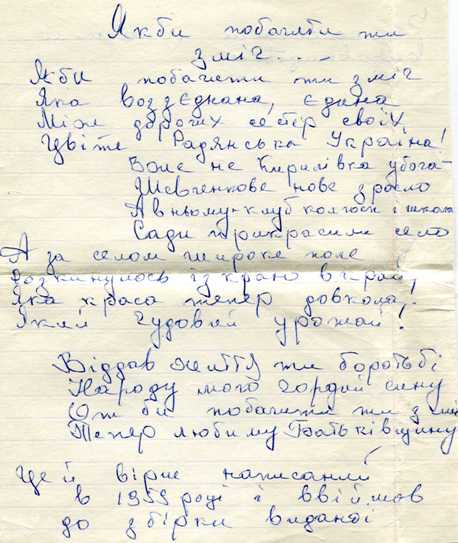 Якби побачити ти
зміг...
Якби побачити ти зміг
Яка возз'єднана, єдина
Між дорогих сестір своїх
Цвіте Радянська Україна!
Воже не Кирилівка убога
Шевченкове нове зросло
А в ньому-клуб колгосп і школа
Сади прикрасили село
А за селом широке поле
Розкинулось із краю в край,
Яка краса тепер довкола,
Який чудовий урожай!
Віддав життя ти боротьбі
Народу мого гордий сину
От би побачити ти зміг
Тепер любиму Батьківщину
Цей вірш написаний
в 1959 році і ввійшов
до збірки виданої